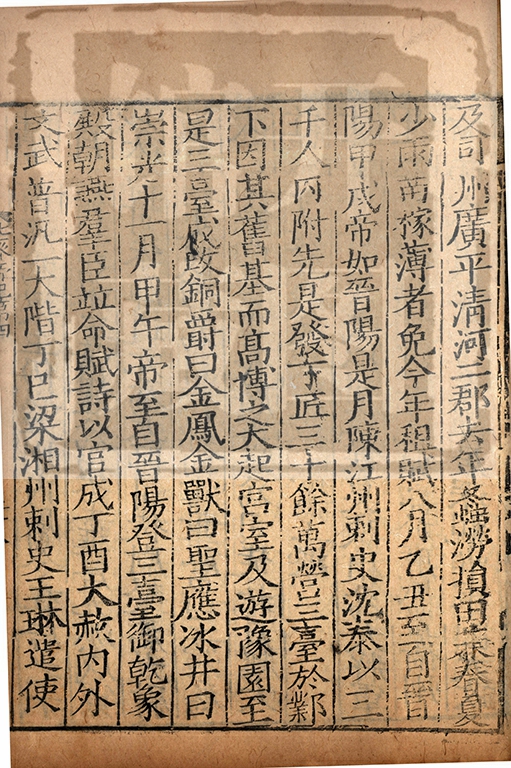 及司州廣平清河二郡去年螽澇損田兼春夏
少雨苗稼薄者免今年租賦八月乙丑至自晉
陽甲戌帝如晉陽是月陳江州刺史沈泰以三
千人內附先是發丁匠三十餘萬營三臺於鄴
下因其舊基而高博之大起宮室及遊豫園至
是三臺成改銅爵曰金鳳金獸曰聖應冰井曰
崇光十一月甲午帝至自晉陽登三臺御乾象
殿朝燕羣臣竝命賦詩以官成丁酉大赦內外
文武普汎一大階丁巳梁湘州刺史王琳遣使